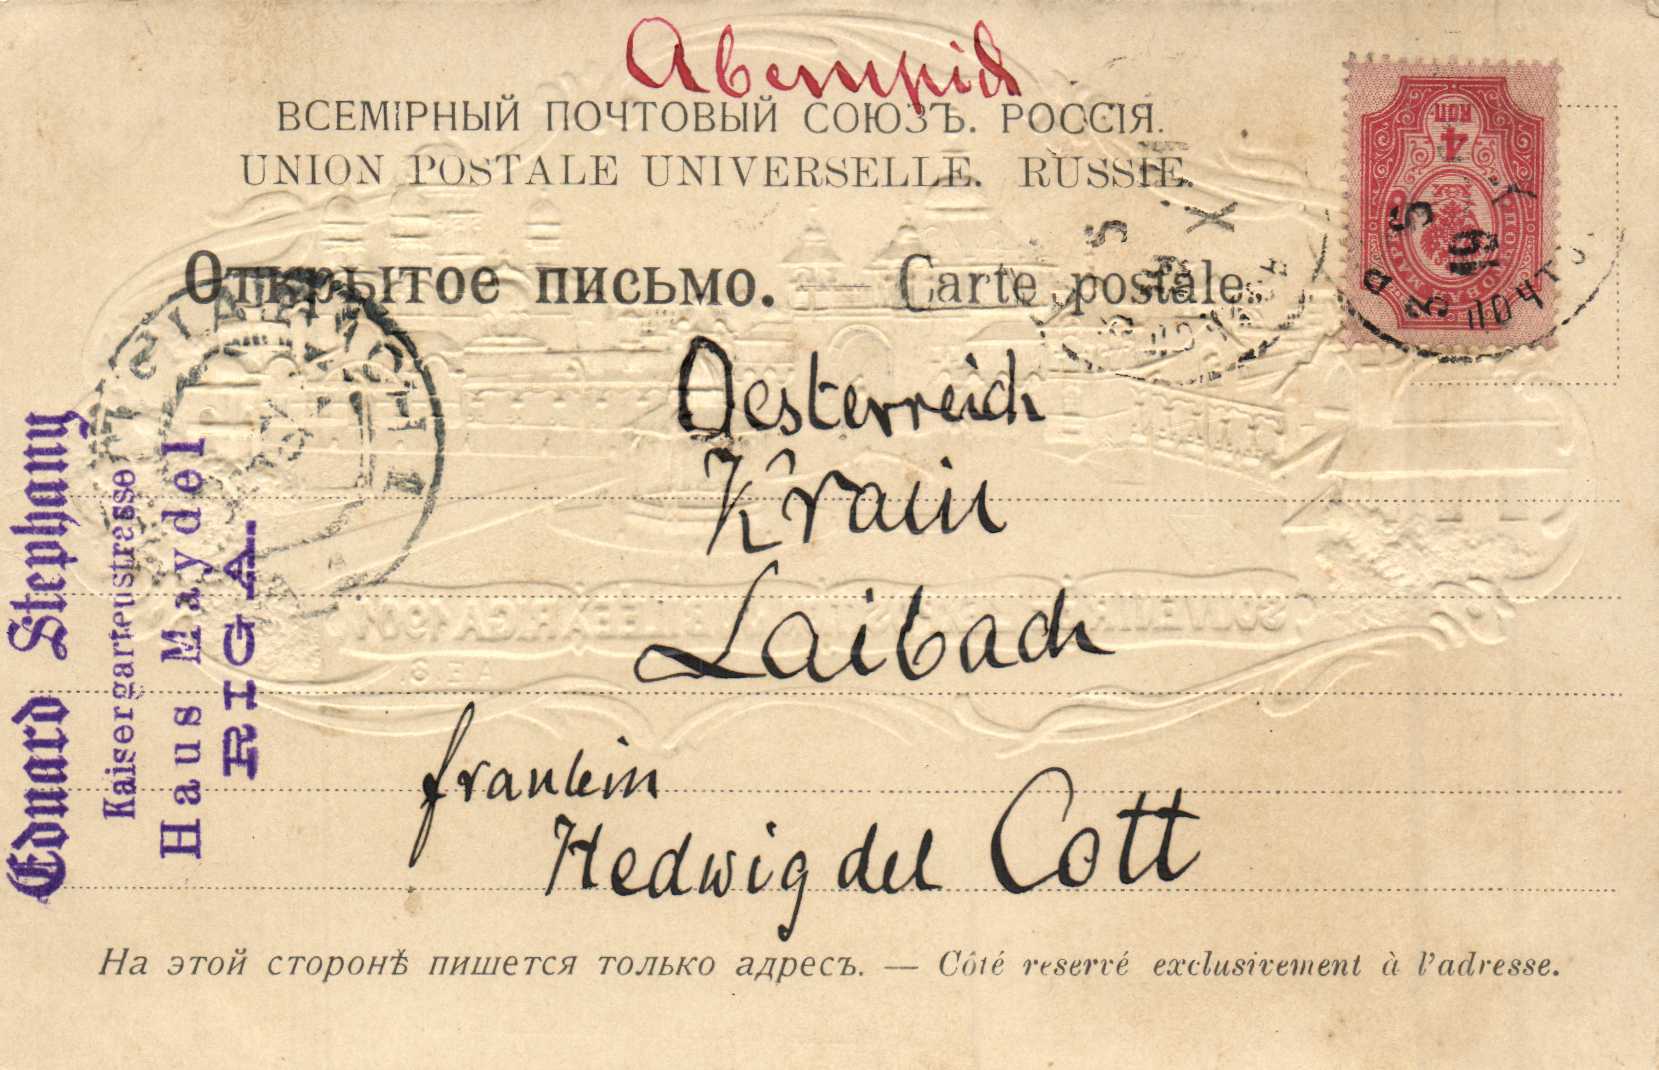 Австрія
ВСЕМІРНЫЙ ПОЧТОВЫЙ СОЮЗЪ. РОССІЯ.
UNION POSTALE UNIVERSELLE. RUSSIE.
Открытое письмо. — Carte postale.
4
КОП
Oesterreich
Krain
Laibach
fraulein
Hedwig del Cott
Eduard Stephany
Kaisergartenstrasse
Haus Maydel
RIGA
LAIBACH
SOUVENIR
RIGA 1901
A.E.S.
На этой сторонѣ пишется только адресъ. — Côté reservé exclusivement à l'adresse.